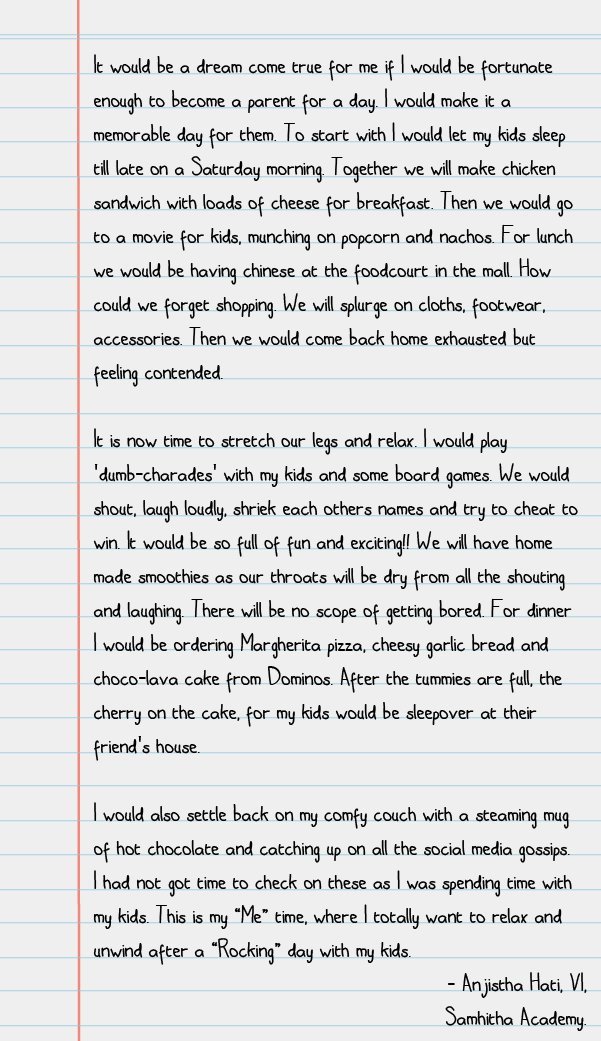 It would be a dream come true for me if I would be fortunate
enough to become a parent for a day. I would make it a
memorable day for them. To start with I would let my kids sleep
till late on a Saturday morning. Together we will make chicken
sandwich with loads of cheese for breakfast. Then we would go
to a movie for kids, munching on popcorn and nachos. For lunch
we would be having chinese at the foodcourt in the mall. How
could we forget shopping. We will splurge on cloths, footwear,
accessories. Then we would come back home exhausted but
feeling contended.
It is now time to stretch our legs and relax. I would play
'dumb-charades' with my kids and some board games. We would
shout, laugh loudly, shriek each others names and try to cheat to
win. It would be so full of fun and exciting!! We will have home
made smoothies as our throats will be dry from all the shouting
and laughing. There will be no scope of getting bored. For dinner
I would be ordering Margherita pizza, cheesy garlic bread and
choco-lava cake from Dominos. After the tummies are full, the
cherry on the cake, for my kids would be sleepover at their
friend's house.
I would also settle back on my comfy couch with a steaming mug
of hot chocolate and catching up on all the social media gossips.
I had not got time to check on these as I was spending time with
my kids. This is my “Me” time, where I totally want to relax and
unwind after a “Rocking” day with my kids.
- Anjistha Hati, VI,
Samhitha Academy.